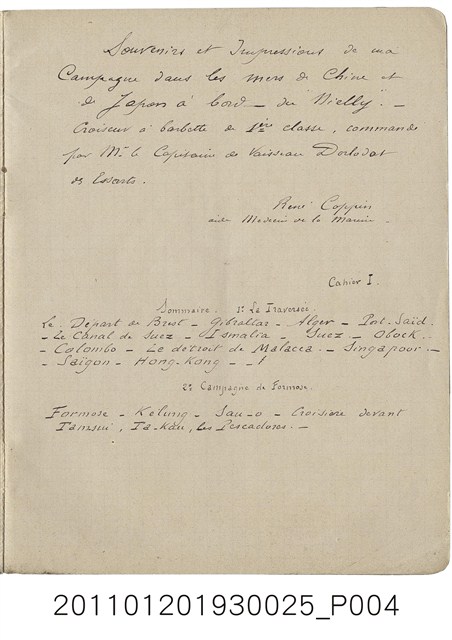 Souvenirs et Impressions de ma
Campagne dans les mers de Chine et
du Japon à bord du Nielly. -
Croiseur à barbette de 1ère classe, commandé
par Mr le Capitaine de Vaisseau Dorlodot
des Essarts.
René Coppin
aide Médecin de la Marine
Cahier I.
Sommaire. 1º La Traversée
Le Départ de Brest - Gibraltar - Alger - Port-Saïd.
- Le Canal de Suez - Ismalia - Suez - Obock.
- Colombo - Le détroit de Malacca - Singapour. -
- Saïgon - Hong-Kong -
2º Campagne de Formose.
Formose - Kelung - Sau-o - Croisière devant
Tamsui, Ta-Kau, les Pescadores. -
201101201930025_P004